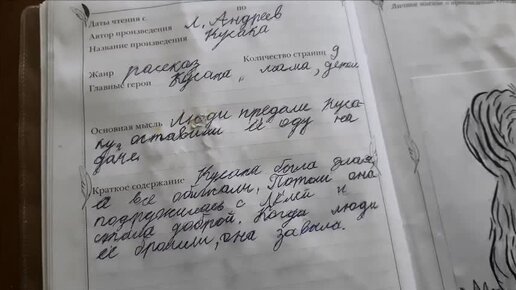 Даты чтения с по
Автор произведения Л. Андреев
Название произведения Кусака
Жанр рассказ Количество страниц 9
Главные герои Кусака, мама, дети
Основная мысль Люди предали Куса-
ку, оставили её оду на
даче.
Краткое содержание Кусака была злая,
а все обижали. Потом она
подружилась с Лёлей и
стала доброй. Когда люди
её бросили, она завыла.